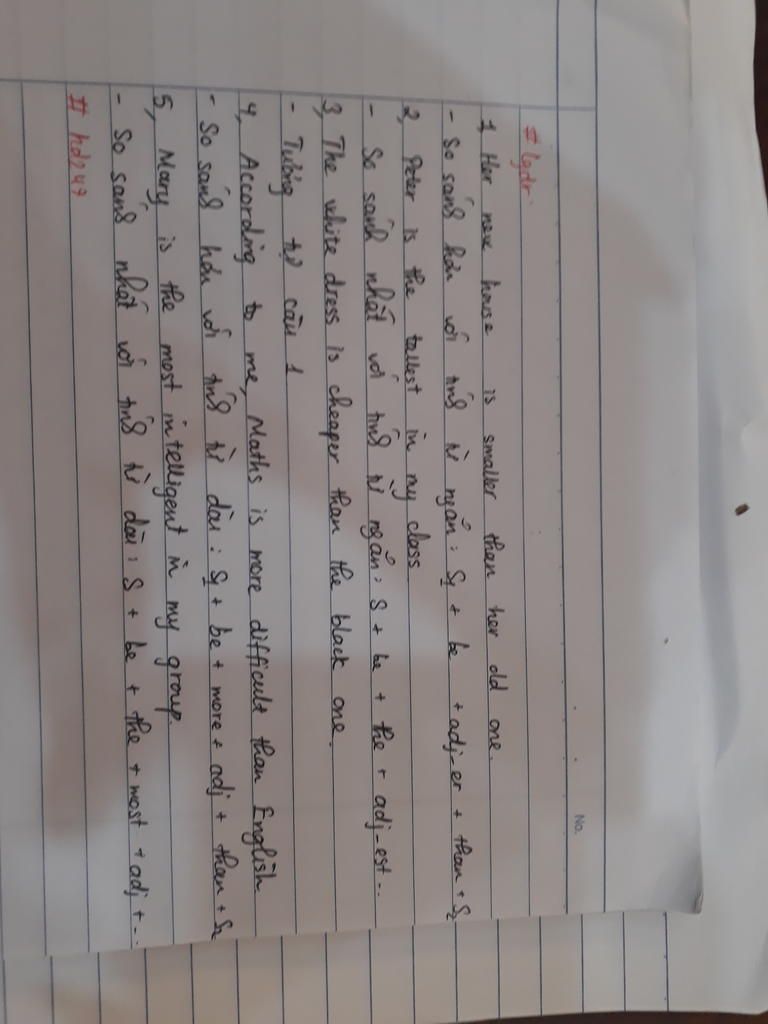 No.
# lgdr.
1, Her new house is smaller than her old one.
- So sánh hơn với tính từ ngắn: S1 + be + adj-er + than + S2
2, Peter is the tallest in my class
- So sánh nhất với tính từ ngắn: S + be + the + adj-est...
3, The white dress is cheaper than the black one.
- Tương tự câu 1
4, According to me, Maths is more difficult than English
- So sánh hơn với tính từ dài: S1 + be + more + adj + than + S2
5, Mary is the most intelligent in my group.
- So sánh nhất với tính từ dài: S + be + the + most + adj + ...
# hd247